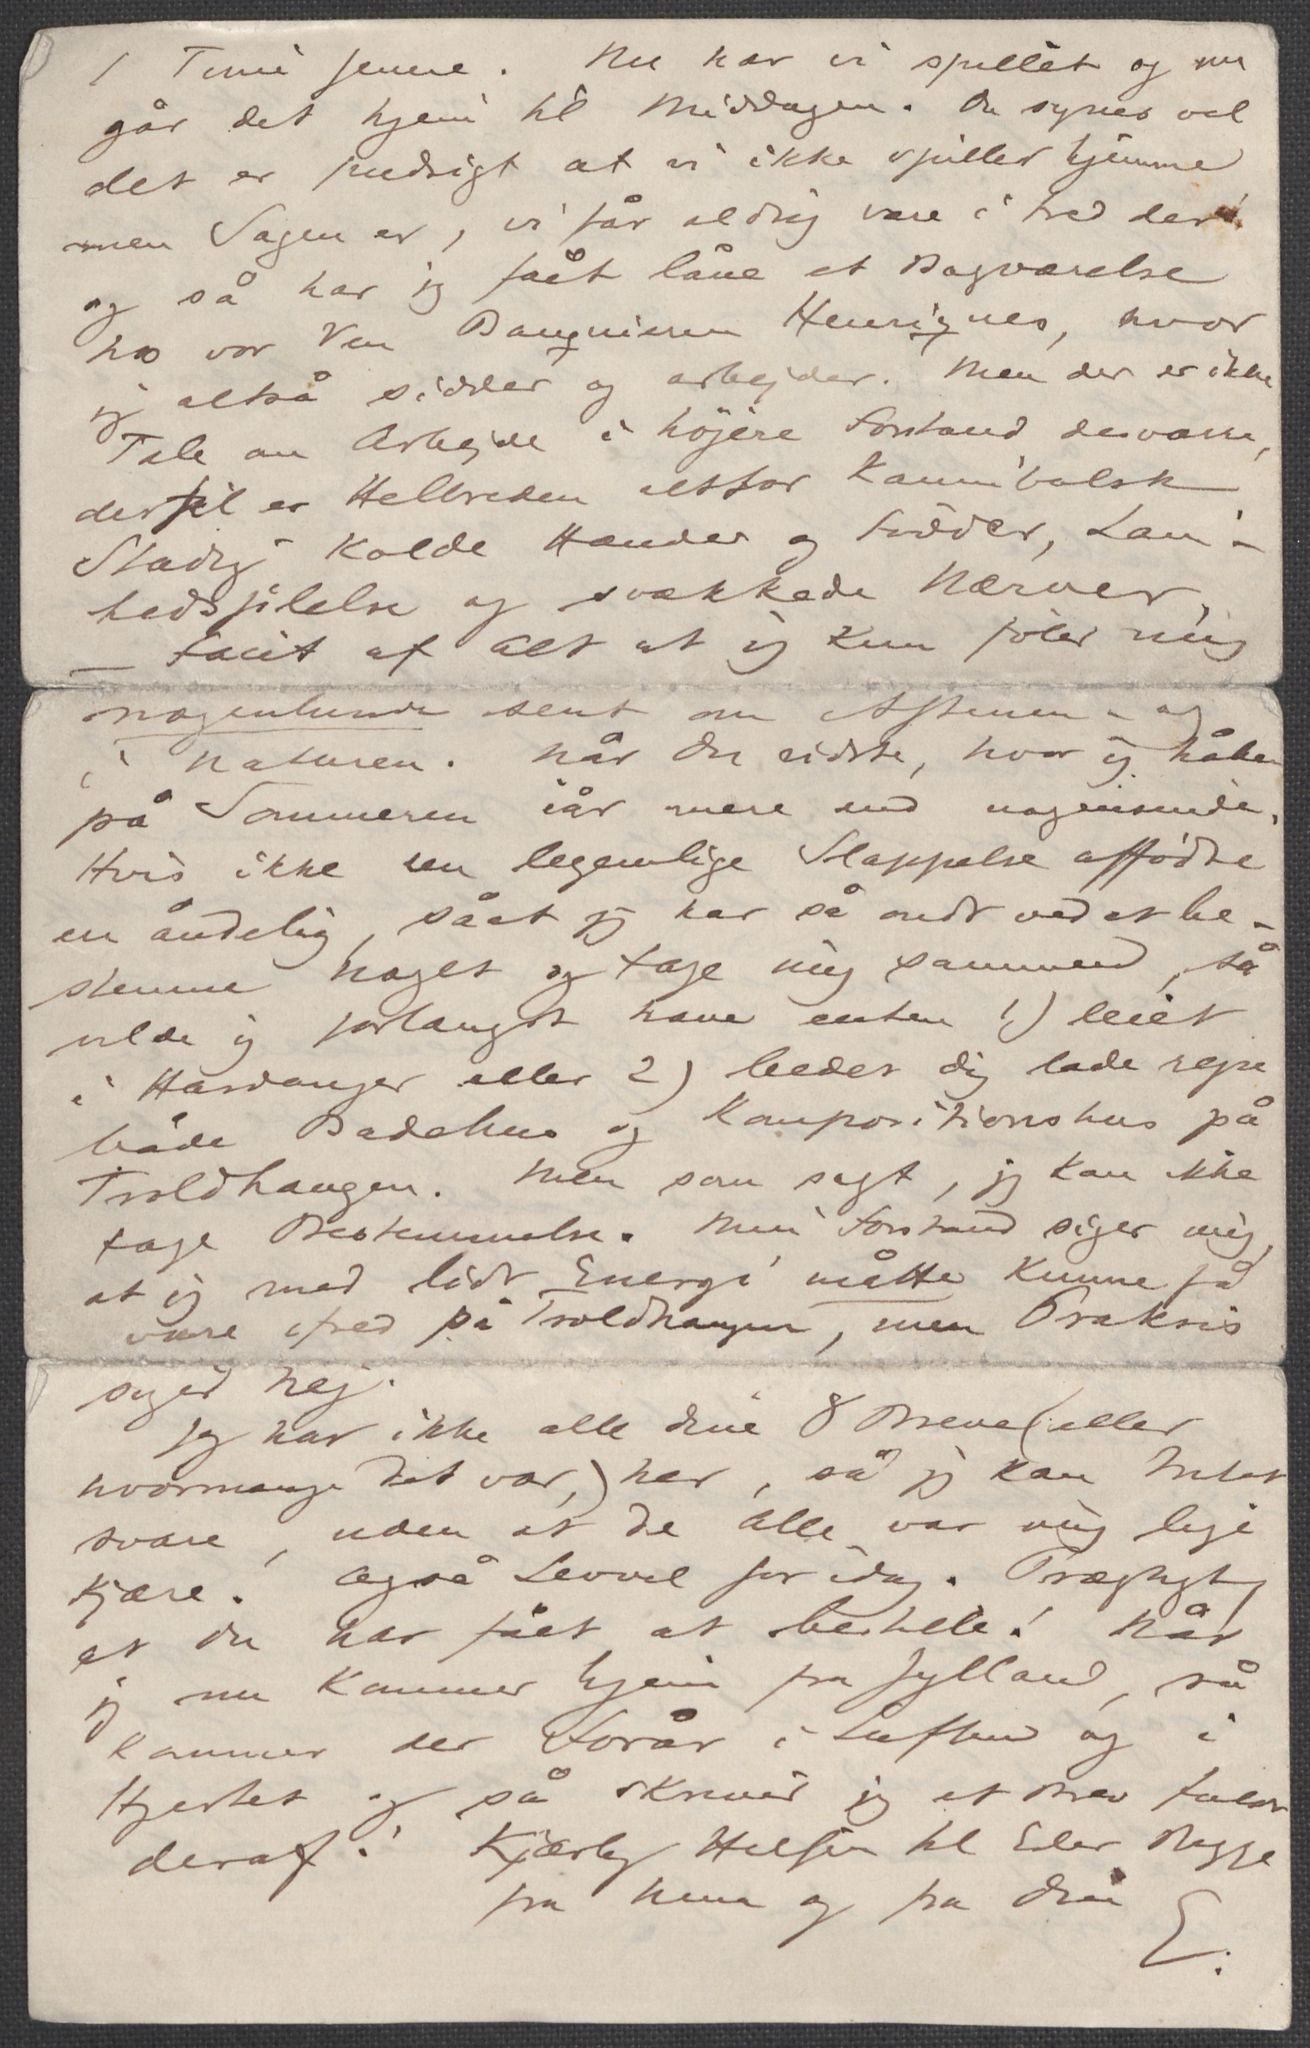 1 Time senere. Nu har vi spillet og nu
går det hjem til Middagen. Du synes vel
det er pudsigt at vi ikke spiller hjemme
men Sagen er, vi får aldrig være i Fred der
og så har jeg fået låne et Bagværelse
hos vor Ven Banquieren Henriques, hvor
jeg altså sidder og arbejder. Men der er ikke
Tale om Arbejde i höjere Forstand desværre,
dertil er Helbreden altfor Kannibalsk
Stadig Kolde Hænder og Födder, Lam-
hedsfölelse og svækkede Nærver,
— Facit af Alt at jeg kun föler mig
nogenlunde sent om Aftenen – og
i Naturen. Når du vidste, hvor jeg håber
på Sommeren iår mere end nogensinde.
Hvis ikke den legemlige Slappelse affödte
en åndelig, såat jeg har så ondt ved at be-
stemme noget og tage mig sammen, så
vilde jeg forlængst have enten 1) leiet
i Hardanger eller 2) bedet dig lade rejse
både Badehus og Kompositionshus på
Troldhaugen. Men som sagt, jeg kan ikke
tage Bestemmelse. Min Forstand siger mig,
at jeg med lidt Energi måtte kunne få
være ifred på Troldhaugen, men Praksis
siger nej.
Jeg har ikke alle dine 8 Breve (eller
hvormange det var,) her, så jeg kan Intet
svare, uden at de alle var mig lige
kjære. Også Levvel for idag. Prægtigt,
at du har fået at bestille! Når
jeg nu kommer hjem fra Jylland, så
kommer der Forår i Luften og i
Hjertet og så skriver jeg et Brev fuldt
deraf! Kjærlig Hilsen til Eder Begge
fra Nina og fra din
E.